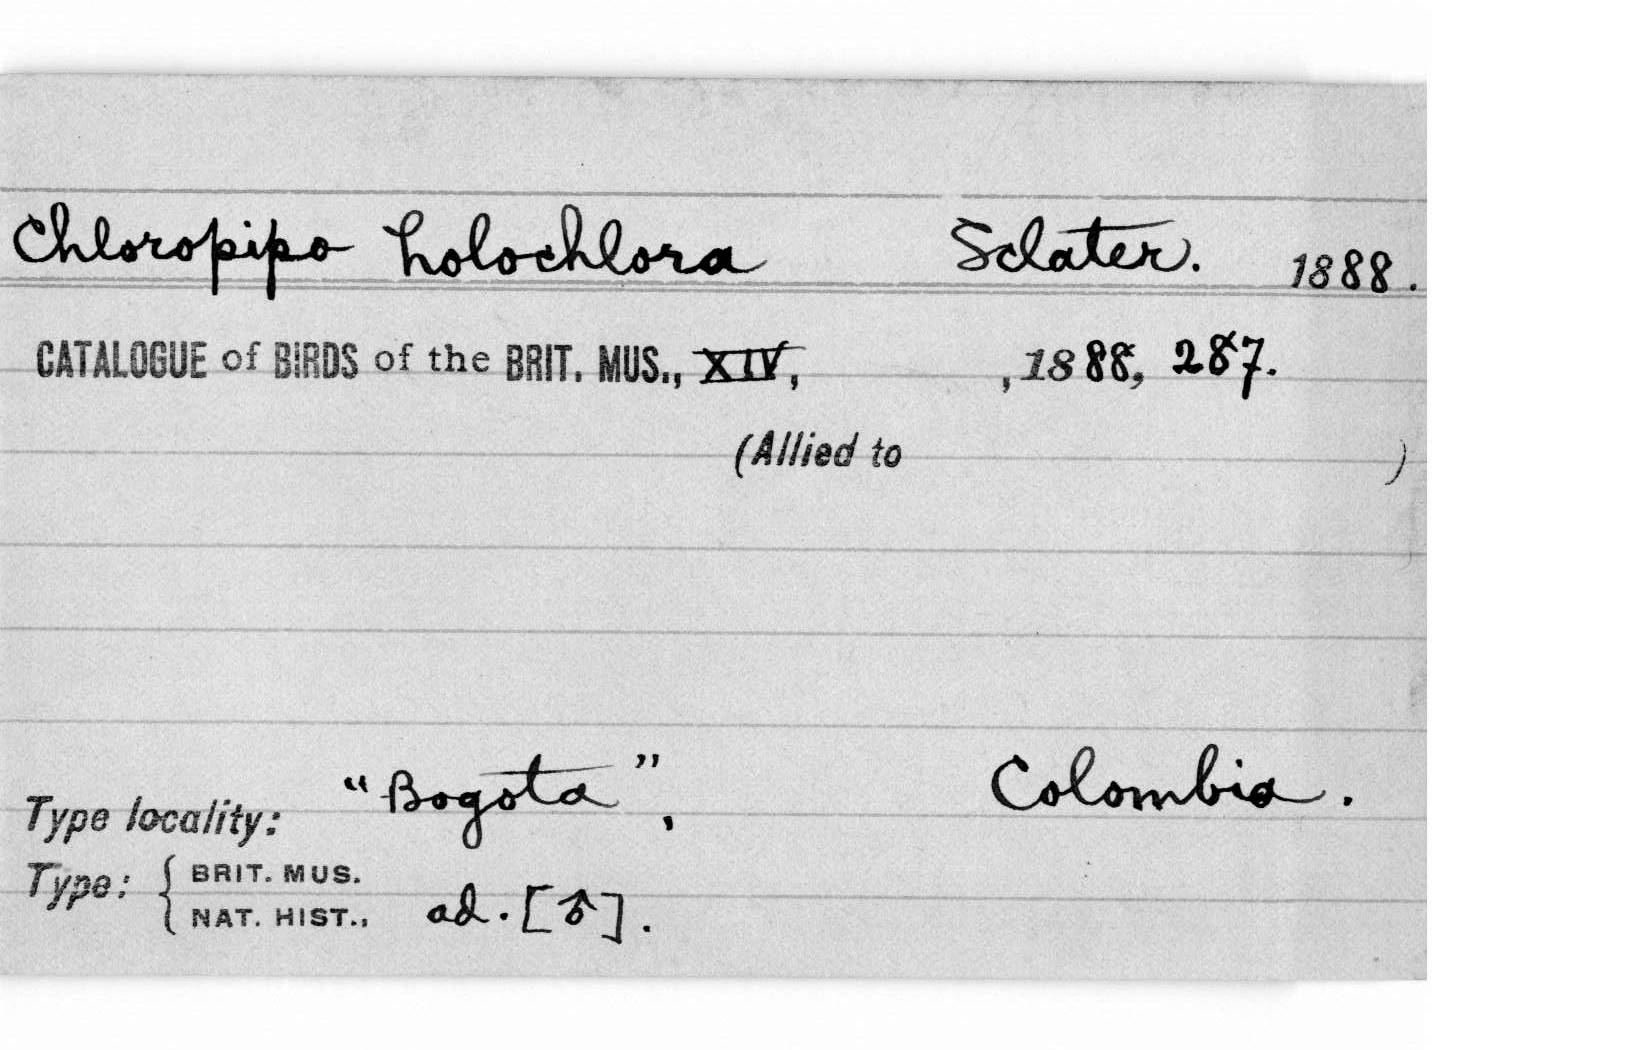 Chloropipo holochlora Sclater. 1888.
CATALOGUE of BIRDS of the BRIT. MUS., XIV, , 1888, 287.
(Allied to )
Type locality: "Bogota", Colombia.
Type: { BRIT. MUS.
NAT. HIST., ad. [♂].